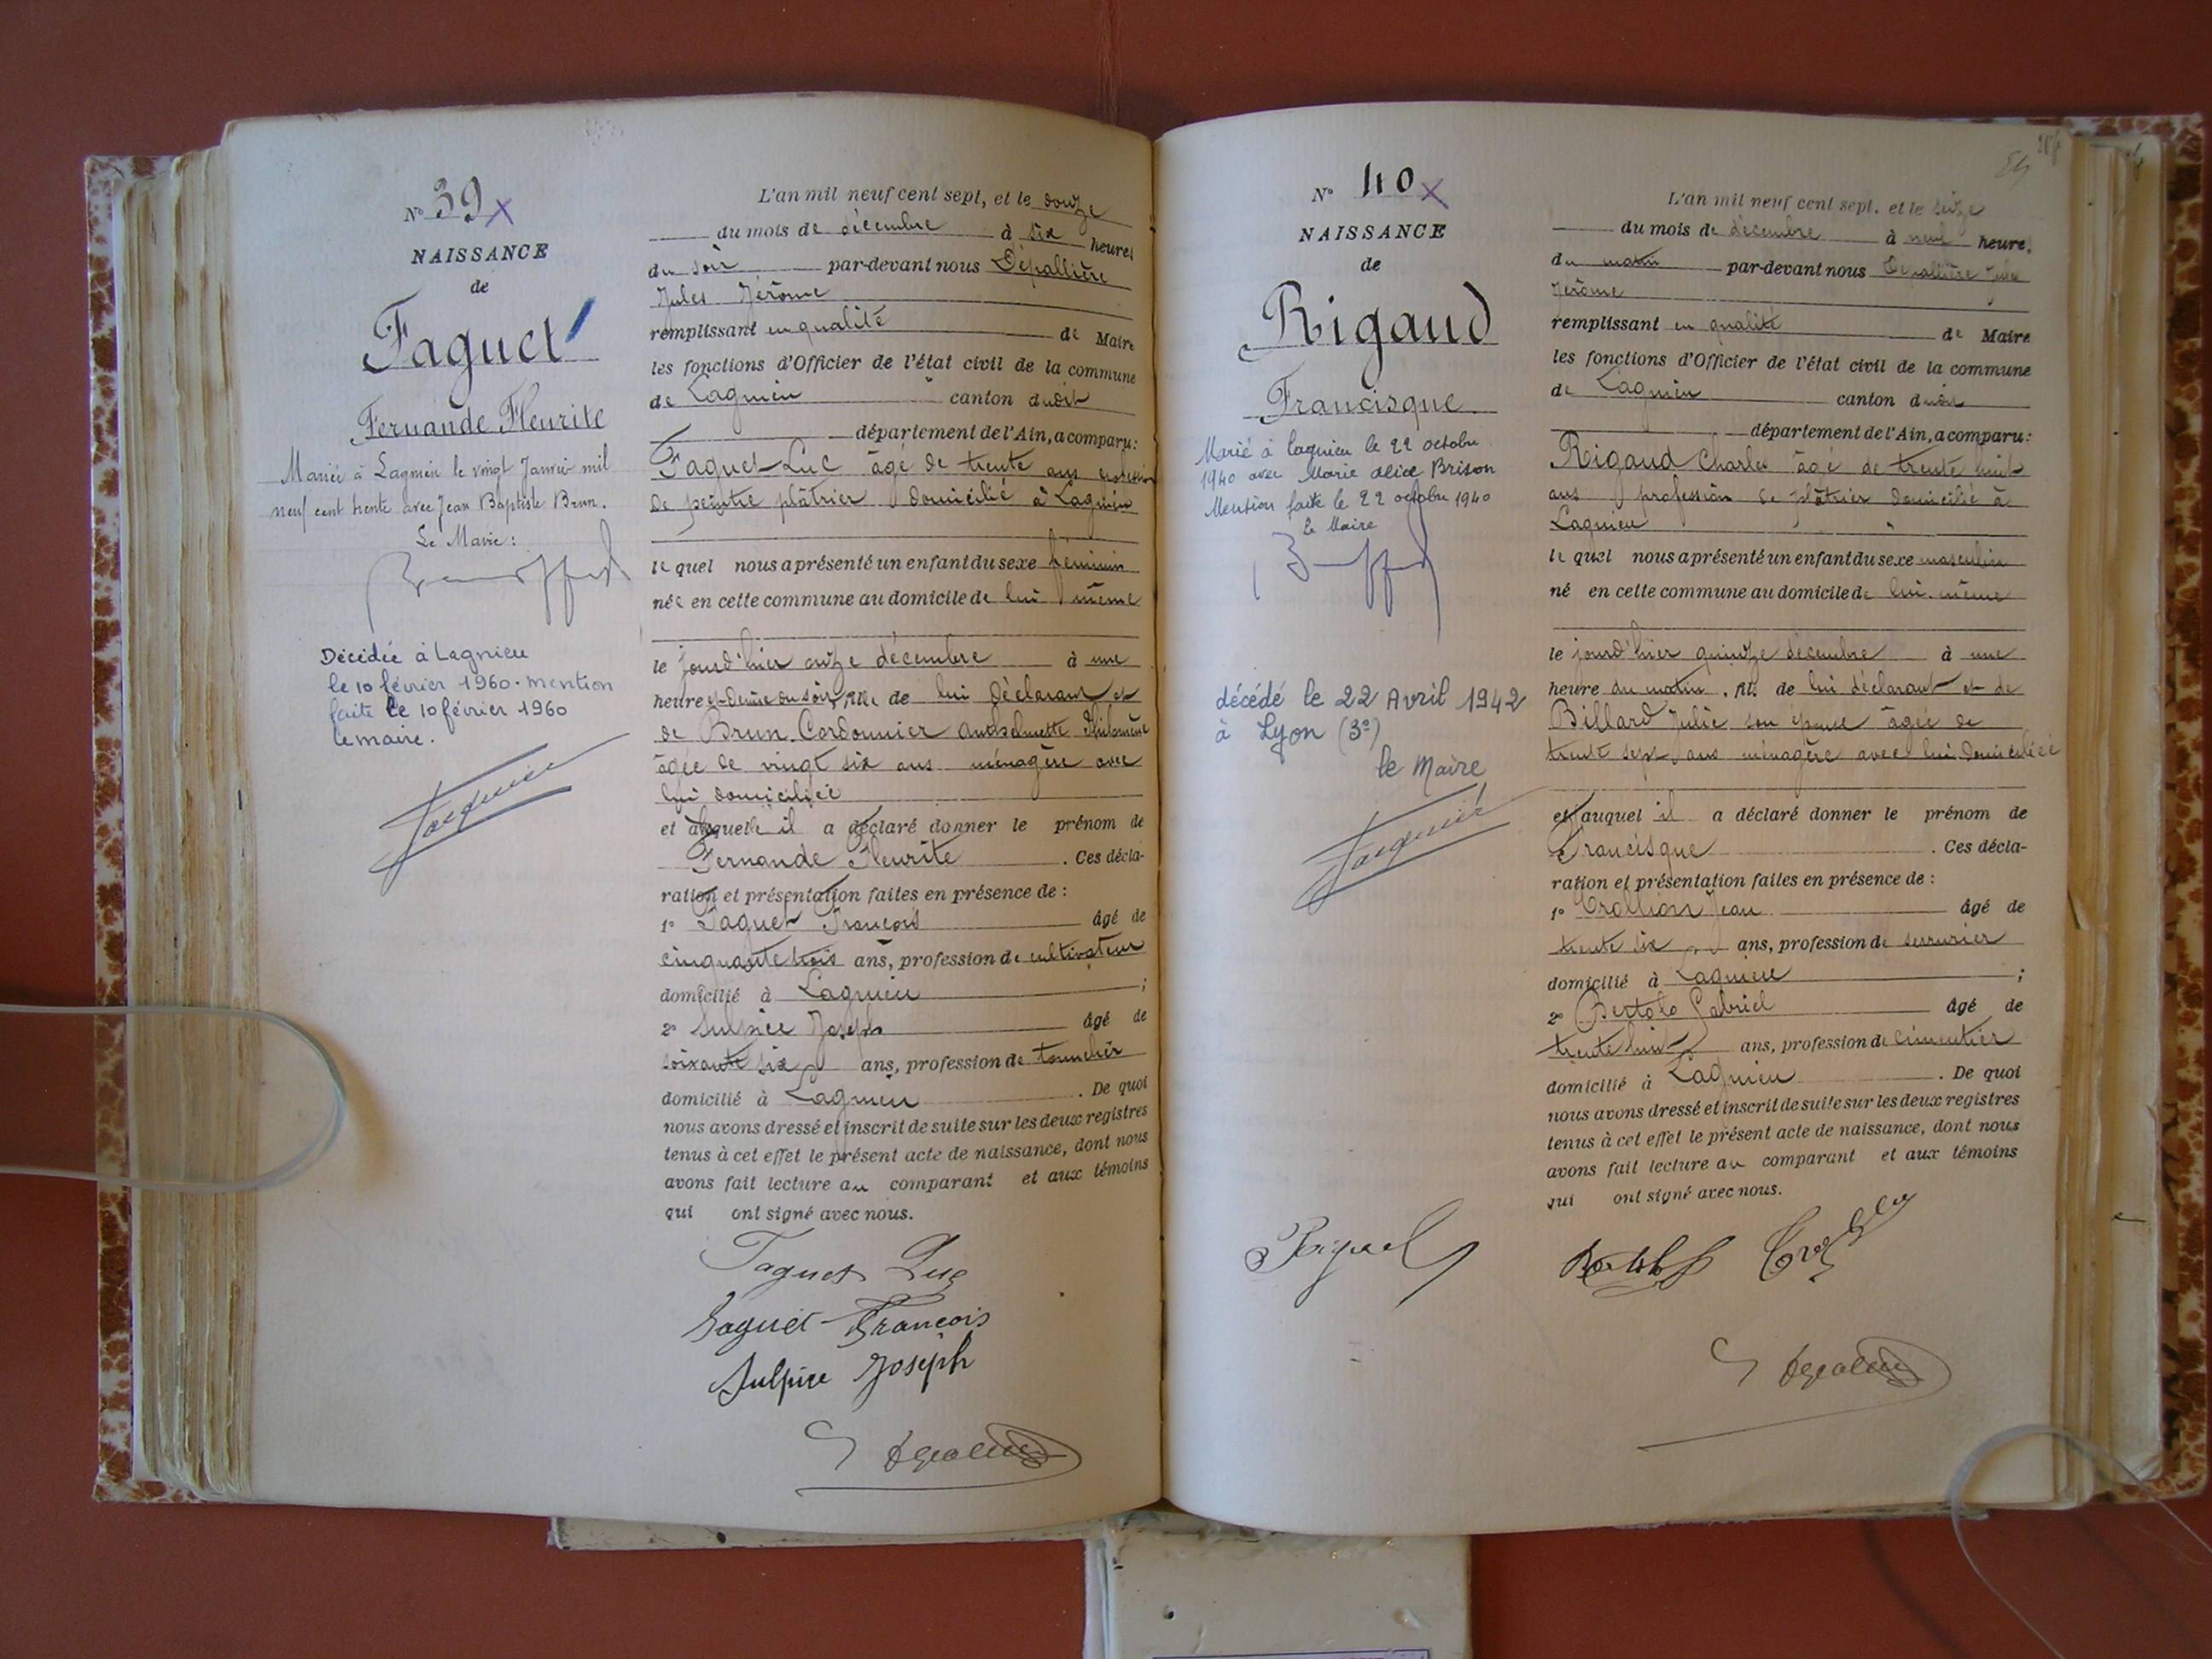 N° 39 x
NAISSANCE
de
Faguet
Fernande Fleurite
Mariée à Lagnieu le vingt Janvier mil
neuf cent trente avec Jean Baptiste Brun.
Le Maire :
Décédée à Lagnieu
le 10 février 1960. mention
faite le 10 février 1960
le maire.
L'an mil neuf cent sept, et le douze
du mois de décembre à six heures
du soir par-devant nous Dépallière
Jules Jérôme
remplissant en qualité de Maire
les fonctions d'Officier de l'état civil de la commune
de Lagnieu canton dudit
département de l'Ain, a comparu :
Faguet Luc âgé de trente ans profession
de peintre plâtrier domicilié à Lagnieu
le quel nous a présenté un enfant du sexe féminin
née en cette commune au domicile de lui même
le jourd'hier onze décembre à une
heure et demie du soir, fille de lui déclarant et
de Brun Cordonnier Anthelmette Philomène
âgée de vingt six ans ménagère avec
lui domiciliée
et à laquelle il a déclaré donner le prénom de
Fernande Fleurite . Ces décla-
ration et présentation faites en présence de :
1° Faguet François âgé de
cinquante trois ans, profession de cultivateur
domicilié à Lagnieu ;
2° Sulpice Joseph âgé de
soixante six ans, profession de
domicilié à Lagnieu . De quoi
nous avons dressé et inscrit de suite sur les deux registres
tenus à cet effet le présent acte de naissance, dont nous
avons fait lecture au comparant et aux témoins
qui ont signé avec nous.
Faguet Luc
Faguet François
Sulpice Joseph
N° 40 x
NAISSANCE
de
Rigaud
Francisque
Marié à Lagnieu le 22 octobre
1940 avec Marie Alice Brison
Mention faite le 22 octobre 1940
Le Maire
décédé le 22 Avril 1942
à Lyon (3e)
le Maire
L'an mil neuf cent sept, et le seize
du mois de décembre à neuf heures
du matin par-devant nous Dépallière Jules
Jérôme
remplissant en qualité de Maire
les fonctions d'Officier de l'état civil de la commune
de Lagnieu canton dudit
département de l'Ain, a comparu :
Rigaud Charles âgé de trente huit
ans profession de plâtrier domicilié à
Lagnieu
le quel nous a présenté un enfant du sexe masculin
né en cette commune au domicile de lui-même
le jourd'hier quinze décembre à une
heure du matin, fils de lui déclarant et de
Billard Julie son épouse âgée de
trente sept ans ménagère avec lui domiciliée
et auquel il a déclaré donner le prénom de
Francisque . Ces décla-
ration et présentation faites en présence de :
1° Trollion Jean âgé de
trente six ans, profession de serrurier
domicilié à Lagnieu ;
2° Bertolo Gabriel âgé de
trente huit ans, profession de cimentier
domicilié à Lagnieu . De quoi
nous avons dressé et inscrit de suite sur les deux registres
tenus à cet effet le présent acte de naissance, dont nous
avons fait lecture au comparant et aux témoins
qui ont signé avec nous.